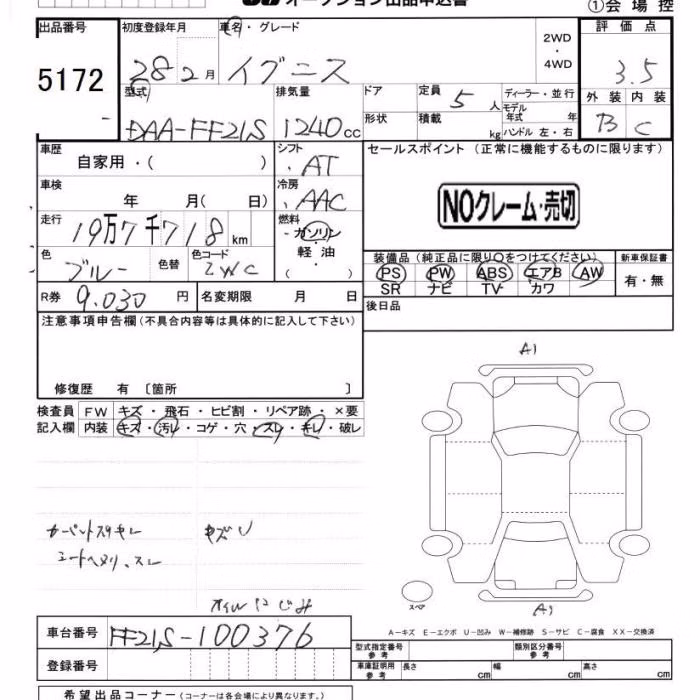 オークション出品申込書
①会場控
出品番号 初度登録年月 車名・グレード 2WD・4WD 評価点
5172 28 2月 イグニス 3.5
型式 排気量 ドア 定員 5人 ディーラー・並行 外装 内装
DAA-FF21S 1240cc 形状 積載 kg モデル年式 年 B C
ハンドル 左・右
車歴 自家用・( ) シフト ・AT セールスポイント (正常に機能するものに限ります)
車検 年 月( 日) 冷房 ・AAC NOクレーム・売切
走行 19万7千718km 燃料 ・ガソリン
軽油
・( )
色 ブルー 色替 色コード ZWC
装備品(純正品に限り〇をつけてください) 新車保証書
PS PW ABS エアB AW 有・無
SR ナビ TV カワ
R券 9.030円 名変期限 月 日 後日品
注意事項申告欄(不具合内容等は具体的に記入して下さい)
修復歴 有 〔箇所 〕
検査員 FW キズ・飛石・ヒビ割・リペア跡・×要
記入欄 内装 キズ・汚レ・コゲ・穴・スレ・キレ・破レ
A1
キズU
スレ
オイルにじみ
スペア
A1
A-キズ E-エクボ U-凹み W-補修跡 S-サビ C-腐食 XX-交換済
車台番号 FF21S-100376
登録番号
型式指定番号 参考 類別区分番号 参考
車庫証明用 参考 長さ cm 幅 cm 高さ cm
希望出品コーナー(コーナーは各会場により異なります。)